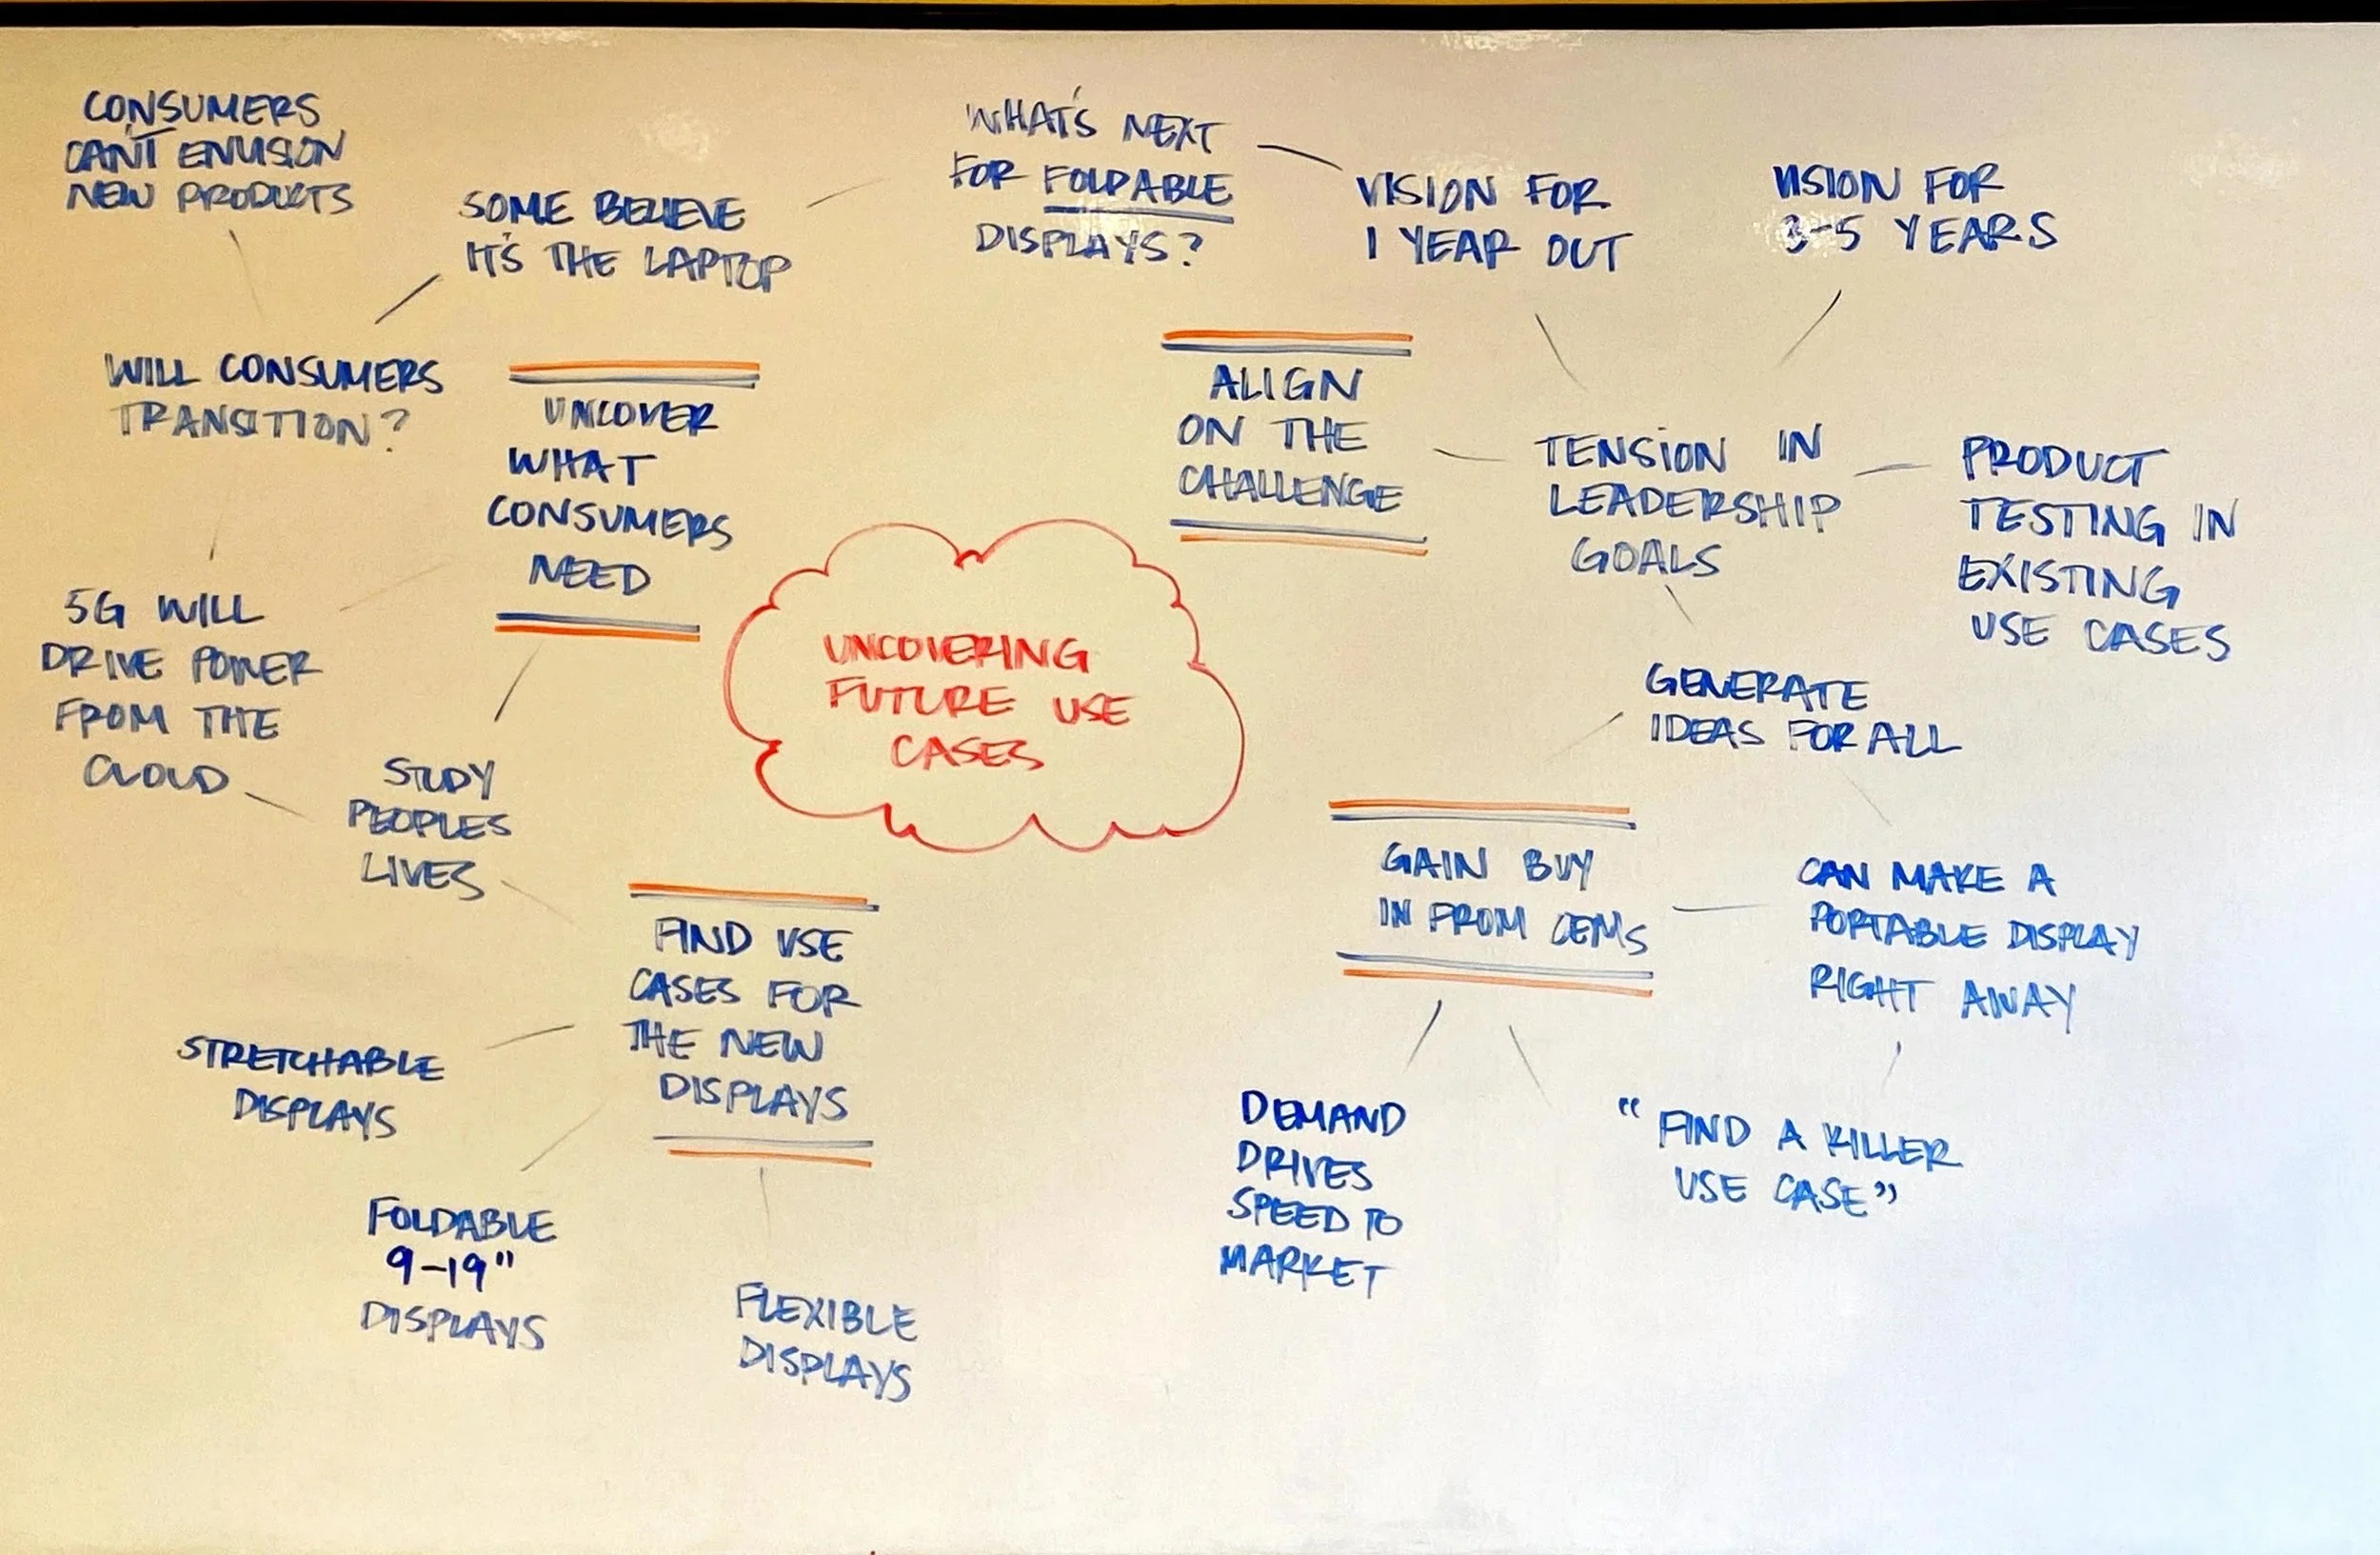 CONSUMERS
CAN'T ENVISION
NEW PRODUCTS
SOME BELIEVE
IT'S THE LAPTOP
WHAT'S NEXT
FOR FOLDABLE
DISPLAYS?
VISION FOR
1 YEAR OUT
VISION FOR
3-5 YEARS
WILL CONSUMERS
TRANSITION?
UNCOVER
WHAT
CONSUMERS
NEED
ALIGN
ON THE
CHALLENGE
TENSION IN
LEADERSHIP
GOALS
PRODUCT
TESTING IN
EXISTING
USE CASES
5G WILL
DRIVE POWER
FROM THE
CLOUD
STUDY
PEOPLES
LIVES
UNCOVERING
FUTURE USE
CASES
GENERATE
IDEAS FOR ALL
GAIN BUY
IN FROM OEMS
CAN MAKE A
PORTABLE DISPLAY
RIGHT AWAY
FIND USE
CASES FOR
THE NEW
DISPLAYS
STRETCHABLE
DISPLAYS
FOLDABLE
9-19"
DISPLAYS
FLEXIBLE
DISPLAYS
DEMAND
DRIVES
SPEED TO
MARKET
"FIND A KILLER
USE CASE"